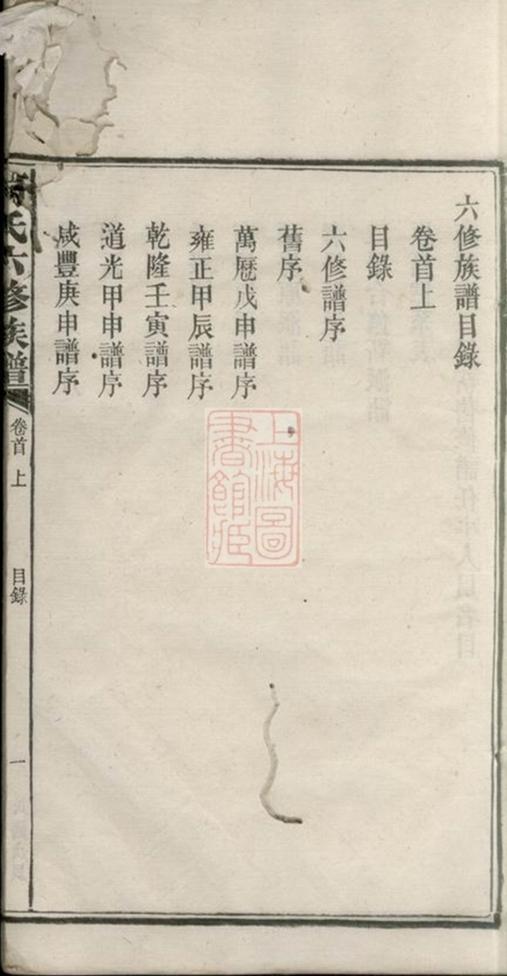 六修族譜目錄
卷首上
目錄
六修譜序
舊序
萬曆戊申譜序
雍正甲辰譜序
乾隆壬寅譜序
道光甲申譜序
咸豐庚申譜序
氏六修族譜
卷首 上
目錄
一
上海圖書館藏